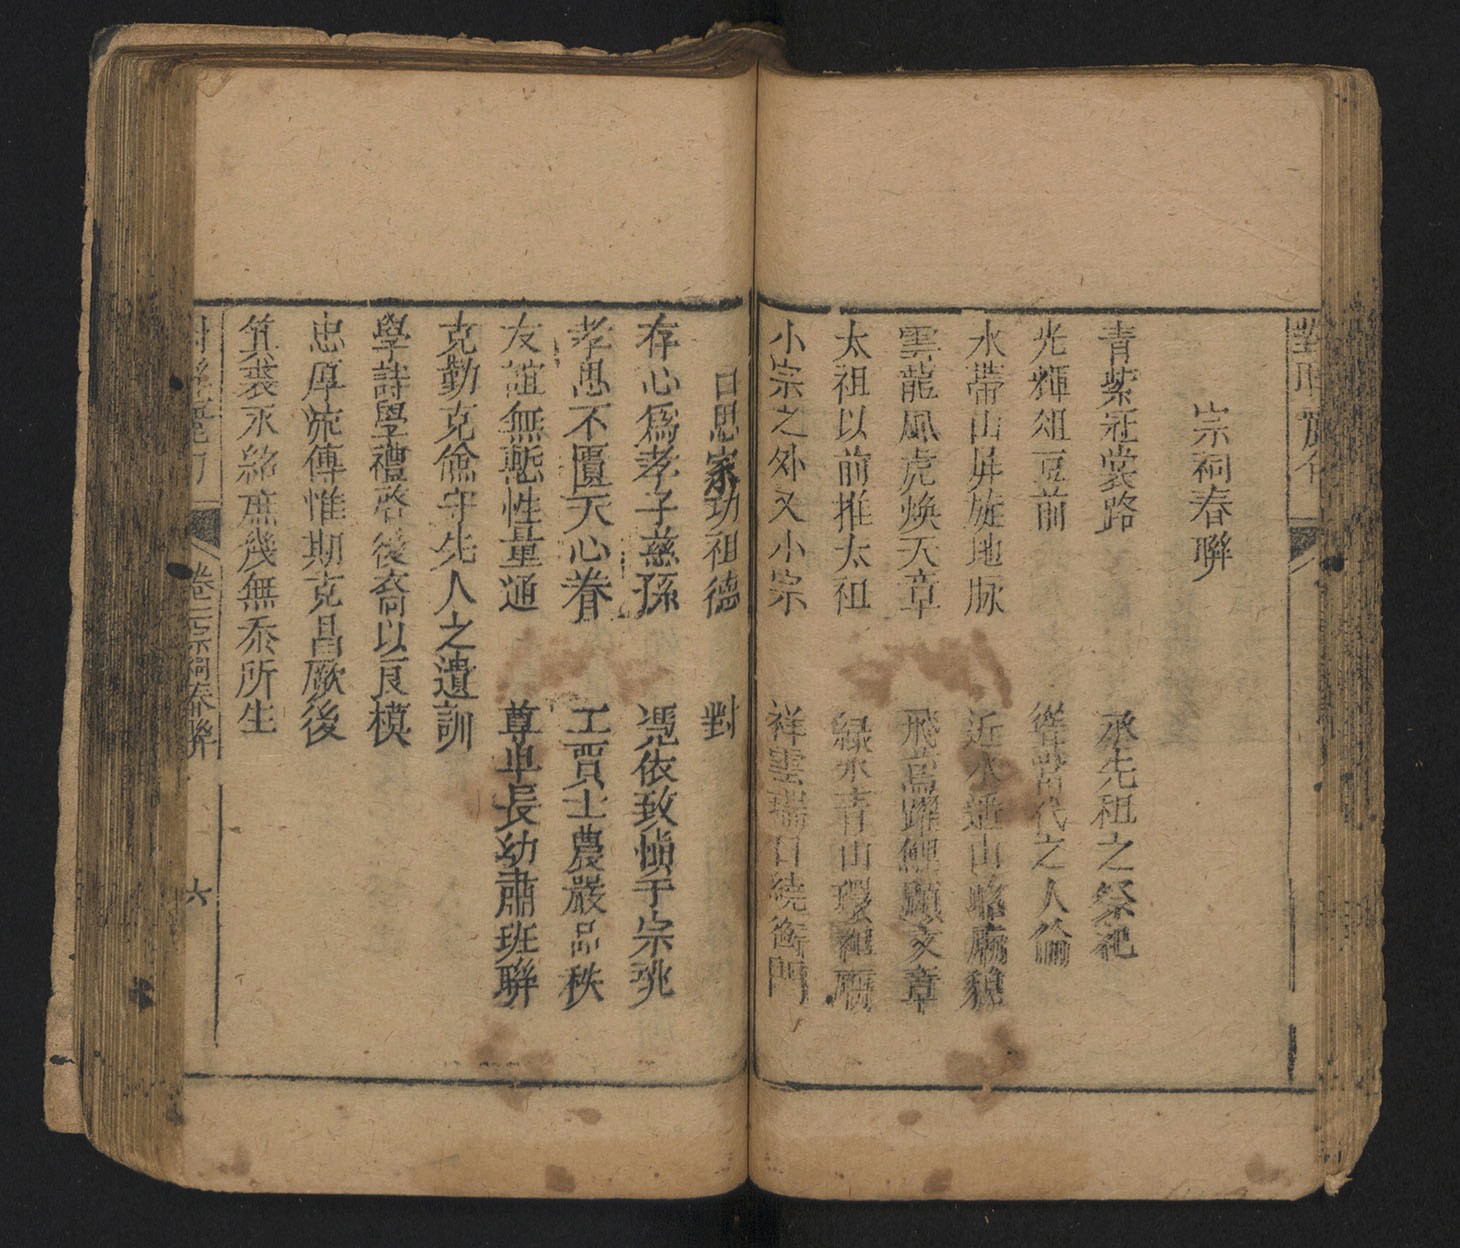 宗祠春聯
青紫冠裳路　承先祖之祭祀
光輝俎豆前　當代之人倫
水帶山屏旋地脉　近水遶山廟貌
雲龍風虎煥天章　飛躍鯉顯文章
太祖以前推太祖　綠水青山環祖廟
小宗之外又小宗　祥雲瑞日繞衡門
思家功祖德　對
存心爲孝子慈孫　憑依致愼于宗祧
孝思不匱天心眷　工賈士農嚴品秩
友誼無慙性量通　尊卑長幼肅班聯
克勤克儉守先人之遺訓
學詩學禮啓後裔以良模
忠厚流傳惟期克昌厥後
箕裘永紹庶幾無忝所生
卷三宗祠春聯
六